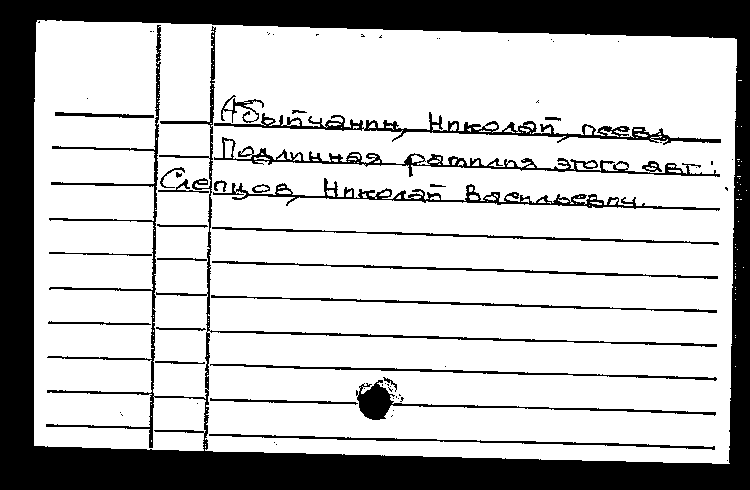 Абыйчанин, Николай, псевд.
Подлинная фамилия этого авт.:
Слепцов, Николай Васильевич.